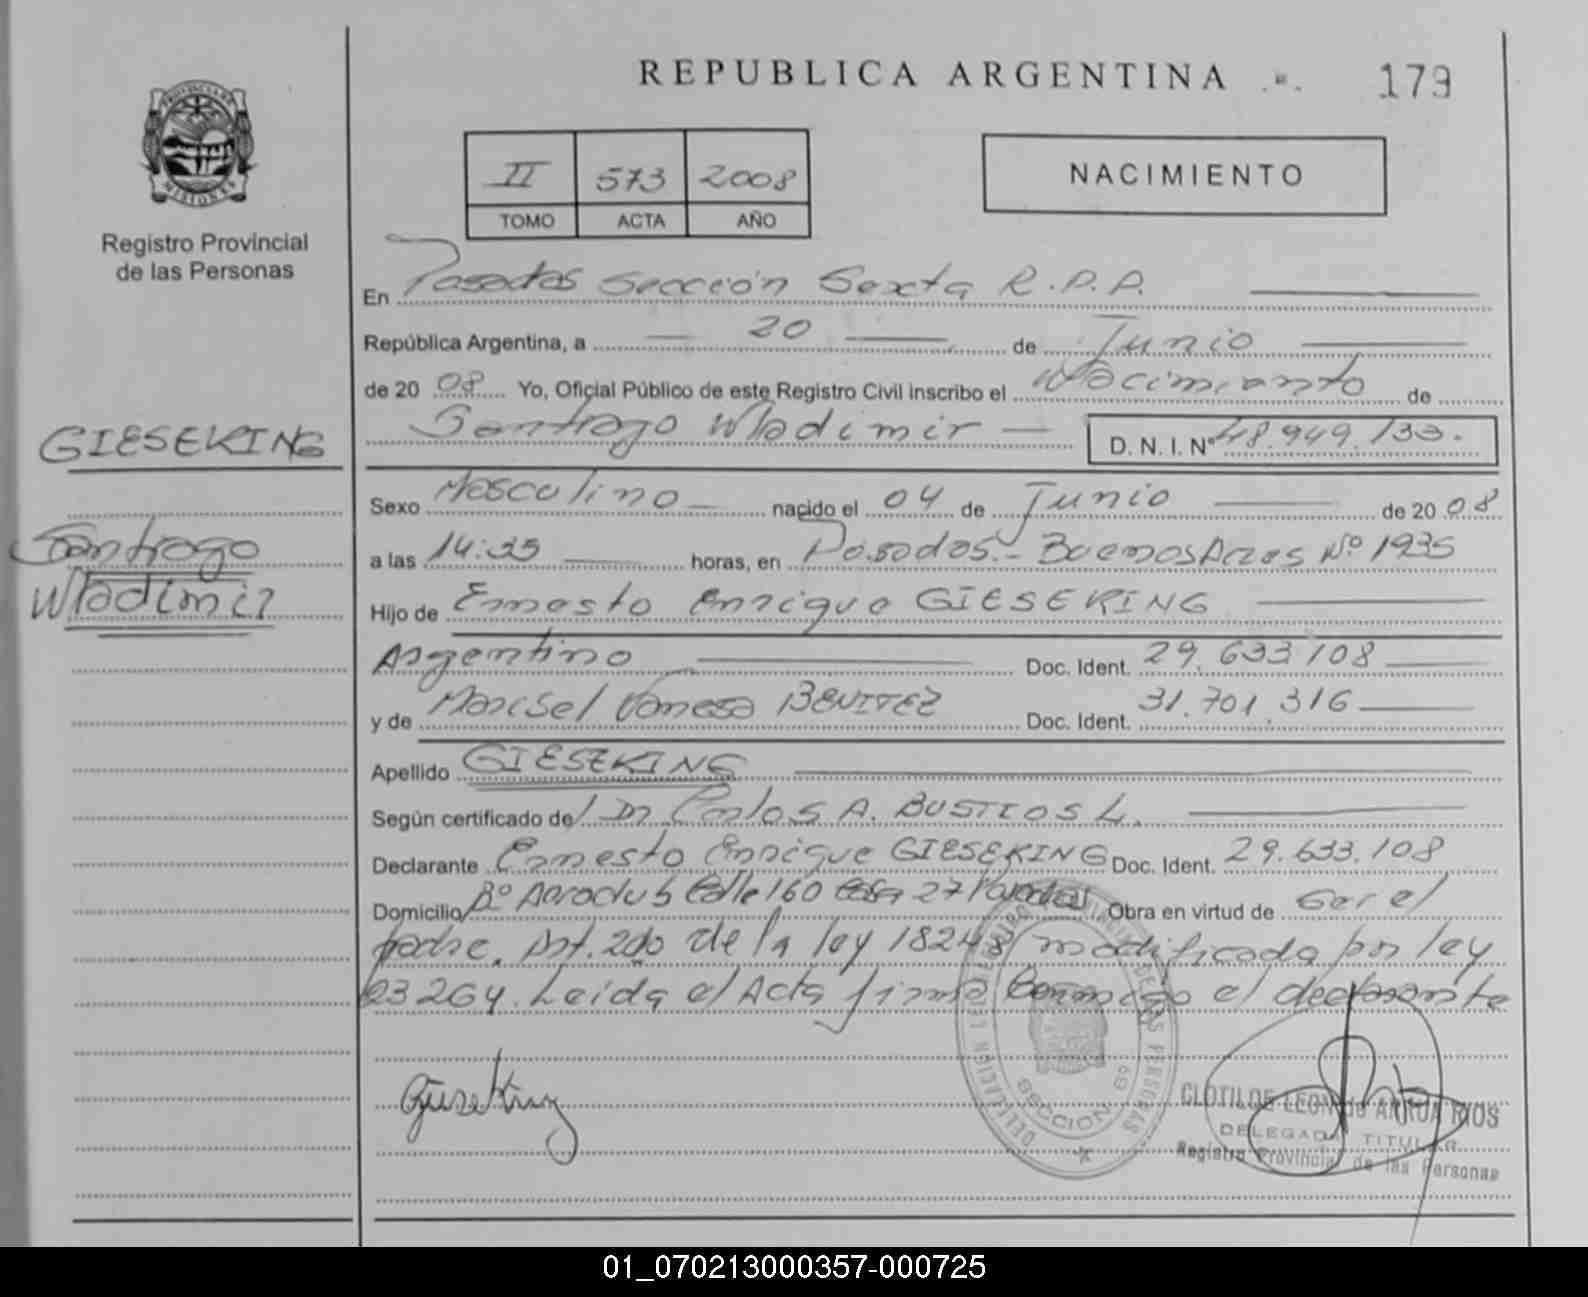 REPUBLICA ARGENTINA
179
PROVINCIA DE
MISIONES
Registro Provincial
de las Personas
II 573 2008
TOMO ACTA AÑO
NACIMIENTO
En Posadas Sección Sexta R.P.P.
República Argentina, a 20 de Junio
de 2008 Yo, Oficial Público de este Registro Civil inscribo el Nacimiento de
Santiago Wladimir D. N. I. Nº 48.949.133.
GIESEKING
Santiago
Wladimir
Sexo Masculino nacido el 04 de Junio de 2008
a las 14:35 horas, en Posadas - Buenos Aires Nº 1935
Hijo de Ernesto Enrique GIESEKING
Argentino Doc. Ident. 29.633.108
y de Marisel Vanesa BENITEZ Doc. Ident. 31.701.316
Apellido GIESEKING
Según certificado del Dr Carlos A. BUSTIOS L.
Declarante Ernesto Enrique GIESEKING Doc. Ident. 29.633.108
Domicilio Bº Aeroclub Calle 160 Casa 27 Posadas Obra en virtud de Ser el
padre. Art. 2do de la ley 18248 modificada por ley
23264. Leida el Acta firma Conmigo el declarante
Gieseking
DELEGACION DEL REGISTRO PROVINCIAL DE LAS PERSONAS
SECCION 6ª
CLOTILDE LEON de ARRUA RIOS
DELEGADA TITULAR
Registro Provincial de las Personas
01_070213000357-000725